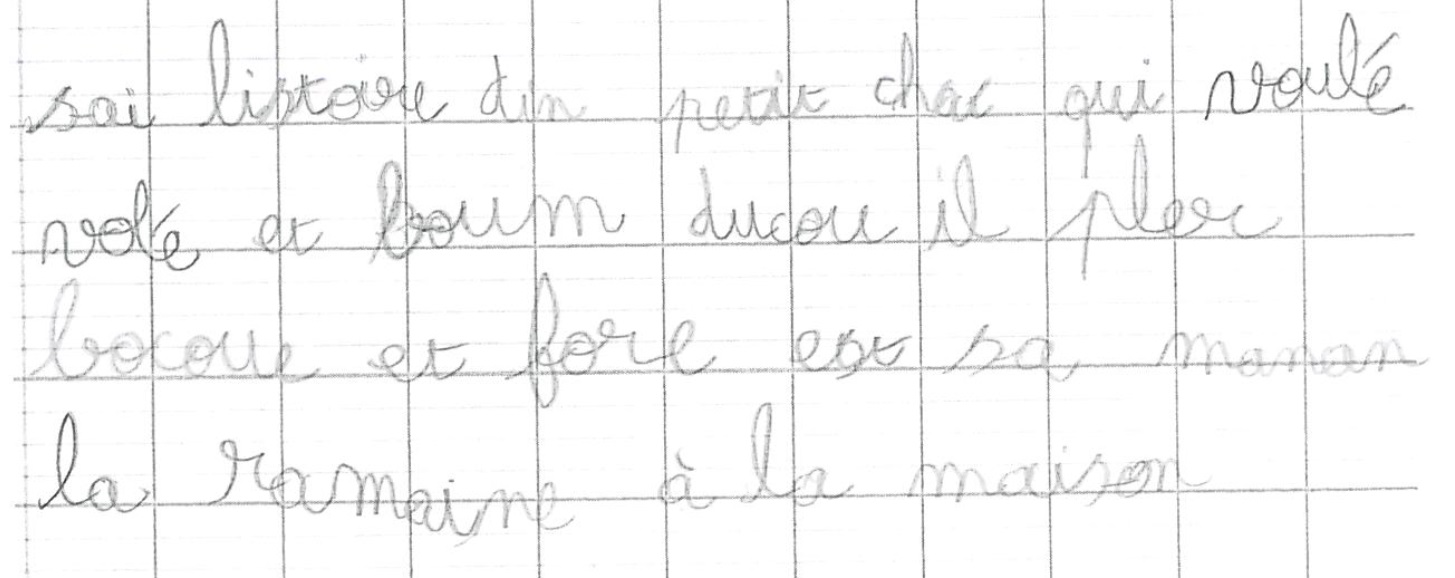 sai listoire din petit chat qui voulé
volé et boum ducou il pler
bocoue et fore est sa maman
la ramaine à la maison